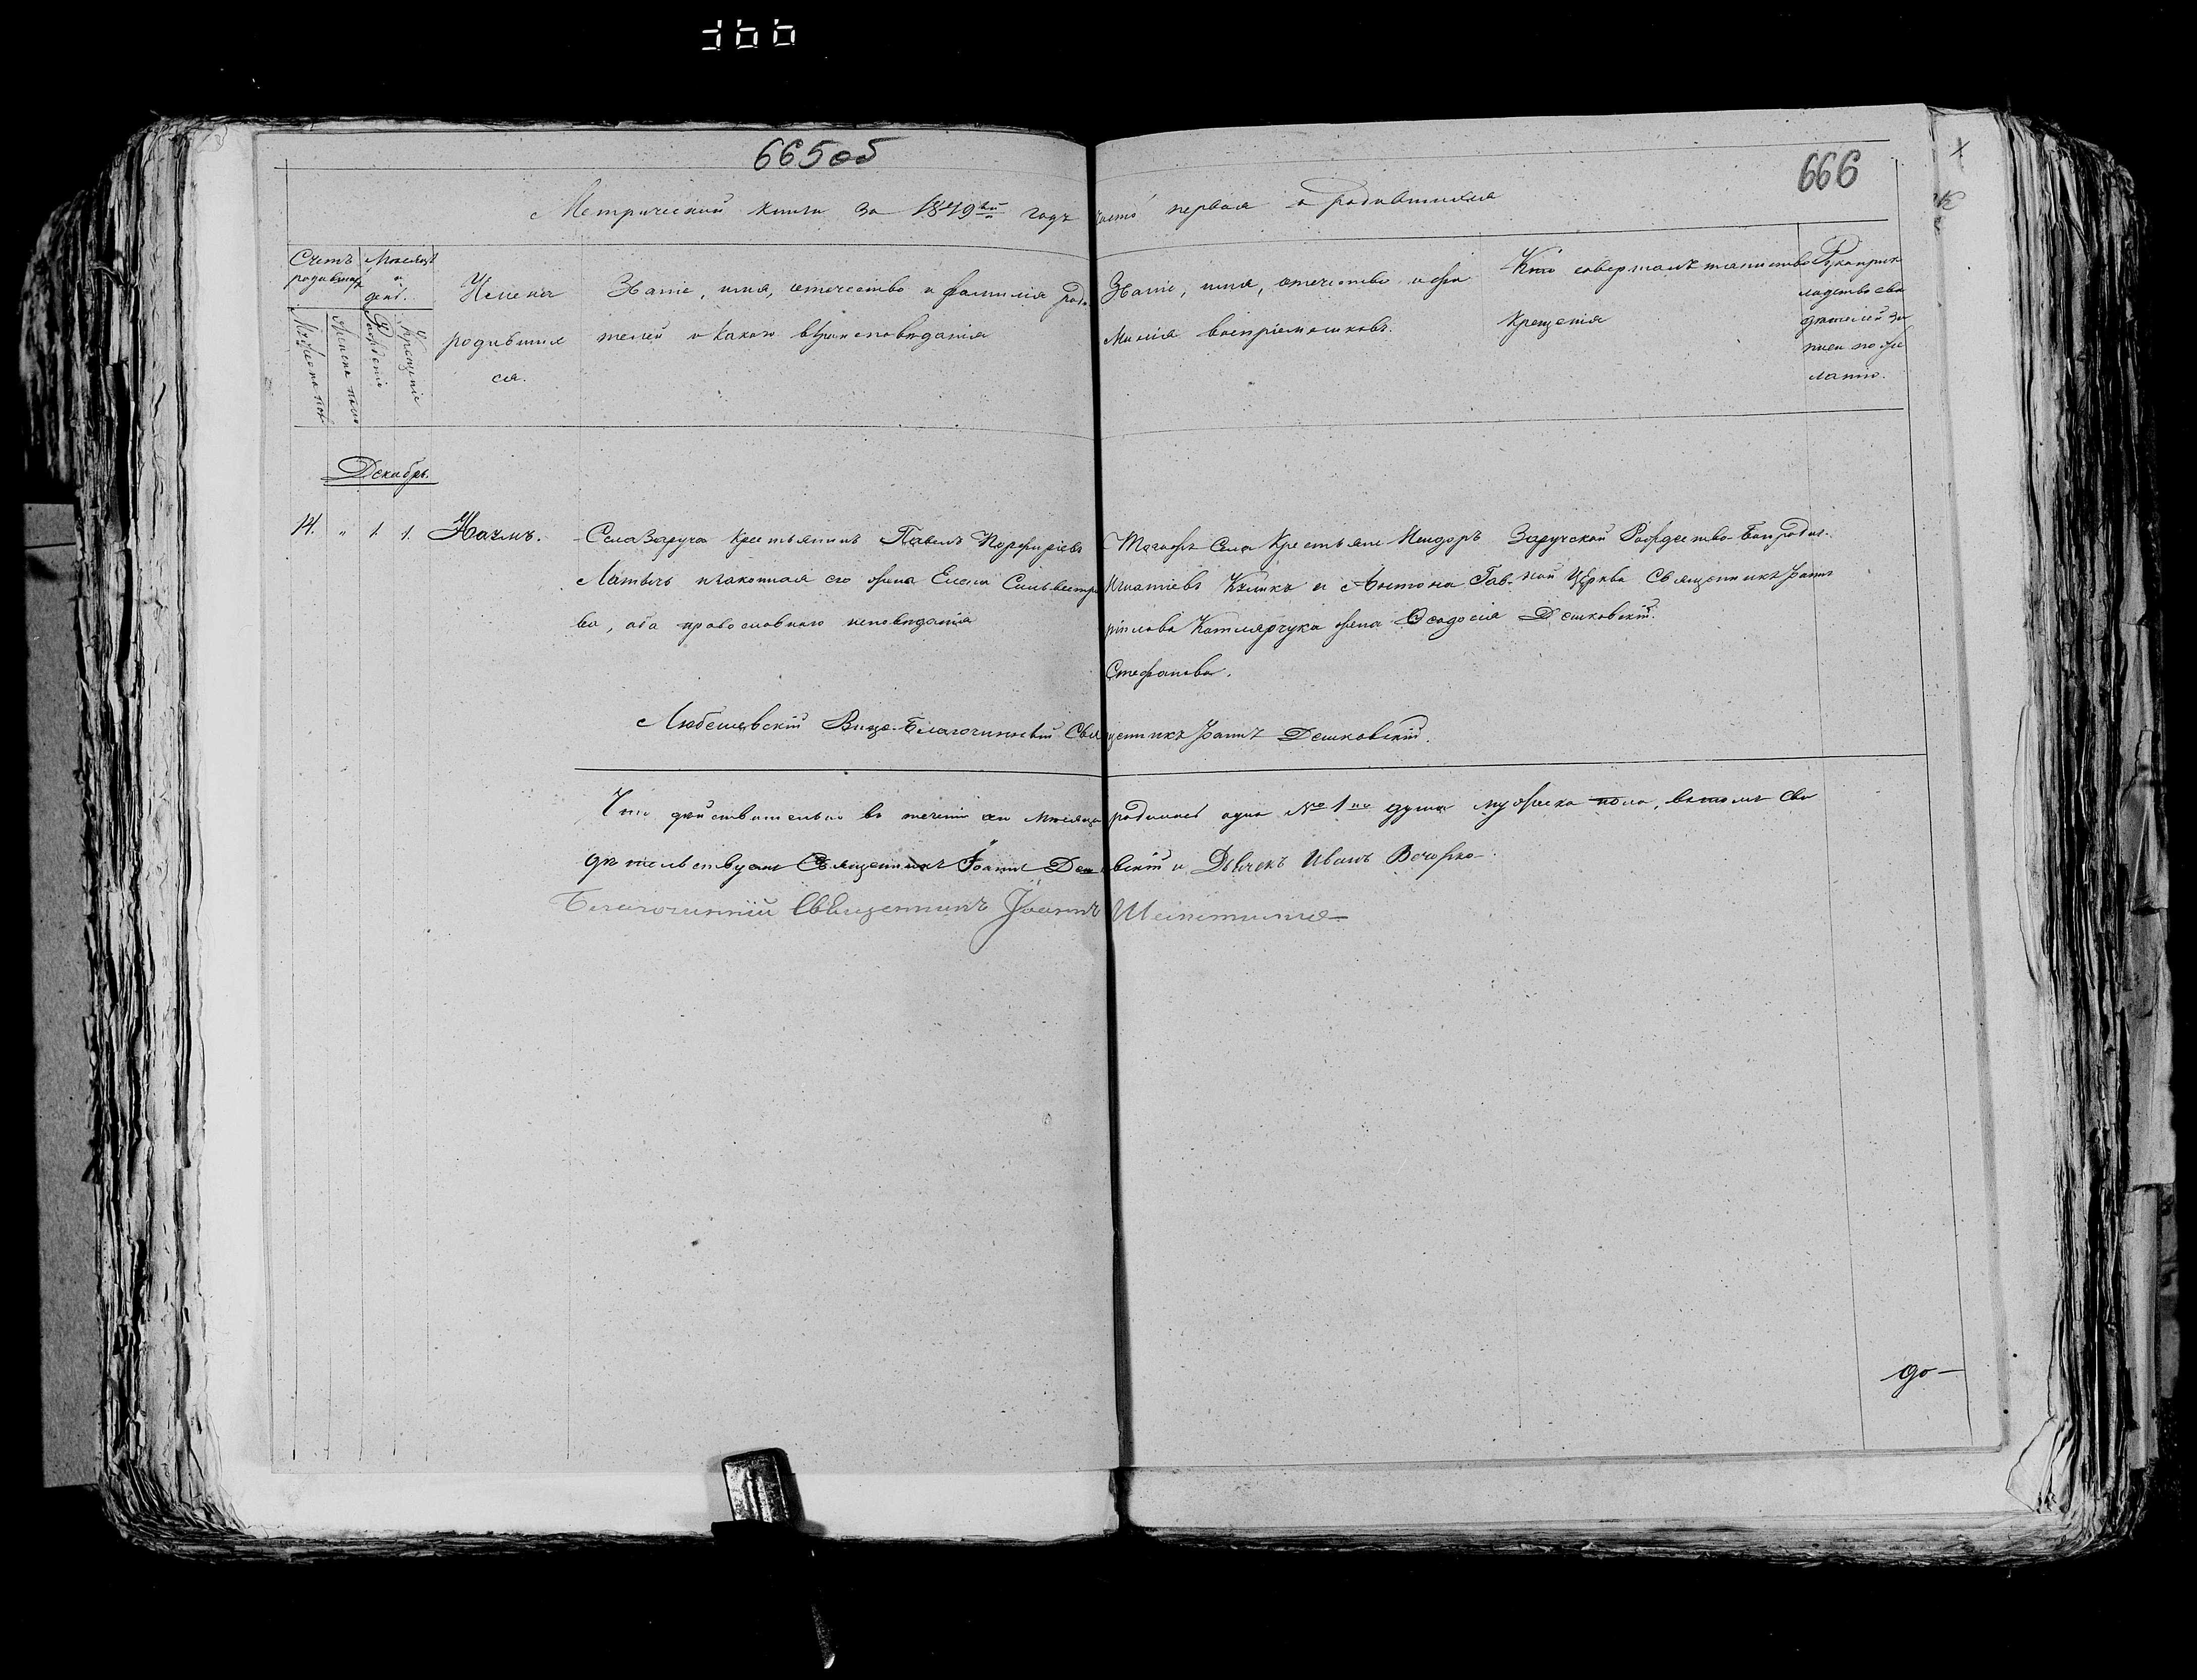 665об
666
Метрической книги за 1849вый годъ часть первая о родившихся
Счетъ родившихъ
Мѣсяцъ и день.
Имена родившихся.
Званіе, имя, отечество и фамилія родителей и какого вѣроисповѣданія
Званіе, имя, отечество и фамилія воспріемниковъ.
Кто совершалъ таинство крещенія
Рукоприкладство свидѣтелей записи по желанію.
Мужеска пол
Женска пола
Рожденія
Крещенія
Декабрь.
14. " 1. 1. Наумъ.
Села Заруча крестьянинъ Павелъ Порфиріевъ
Латышъ и законная его жена Елена Сильвестро
ва, оба православнаго исповѣданія
Тогожъ Села Крестьяне Исидоръ
Игнатіевъ Климкъ и Антона Гав-
ріилова Котлярчука жена Ѳеодосія
Стефанова.
Заручской Рождество-Богородич-
ной Церкви Священникъ Іоаннъ
Дешковскій.
Любешевскій Вице-Благочинный Священникъ Іоаннъ Дешковскій.
Что дѣйствительно въ теченіи сего мѣсяца родилась одна № 1 душа мужеска пола, въ томъ сви
дѣтельствуемъ Священникъ Іоаннъ Дешковскій и Дьячекъ Иванъ Вечорко
Благочинній Священникъ Іоаннъ
до—